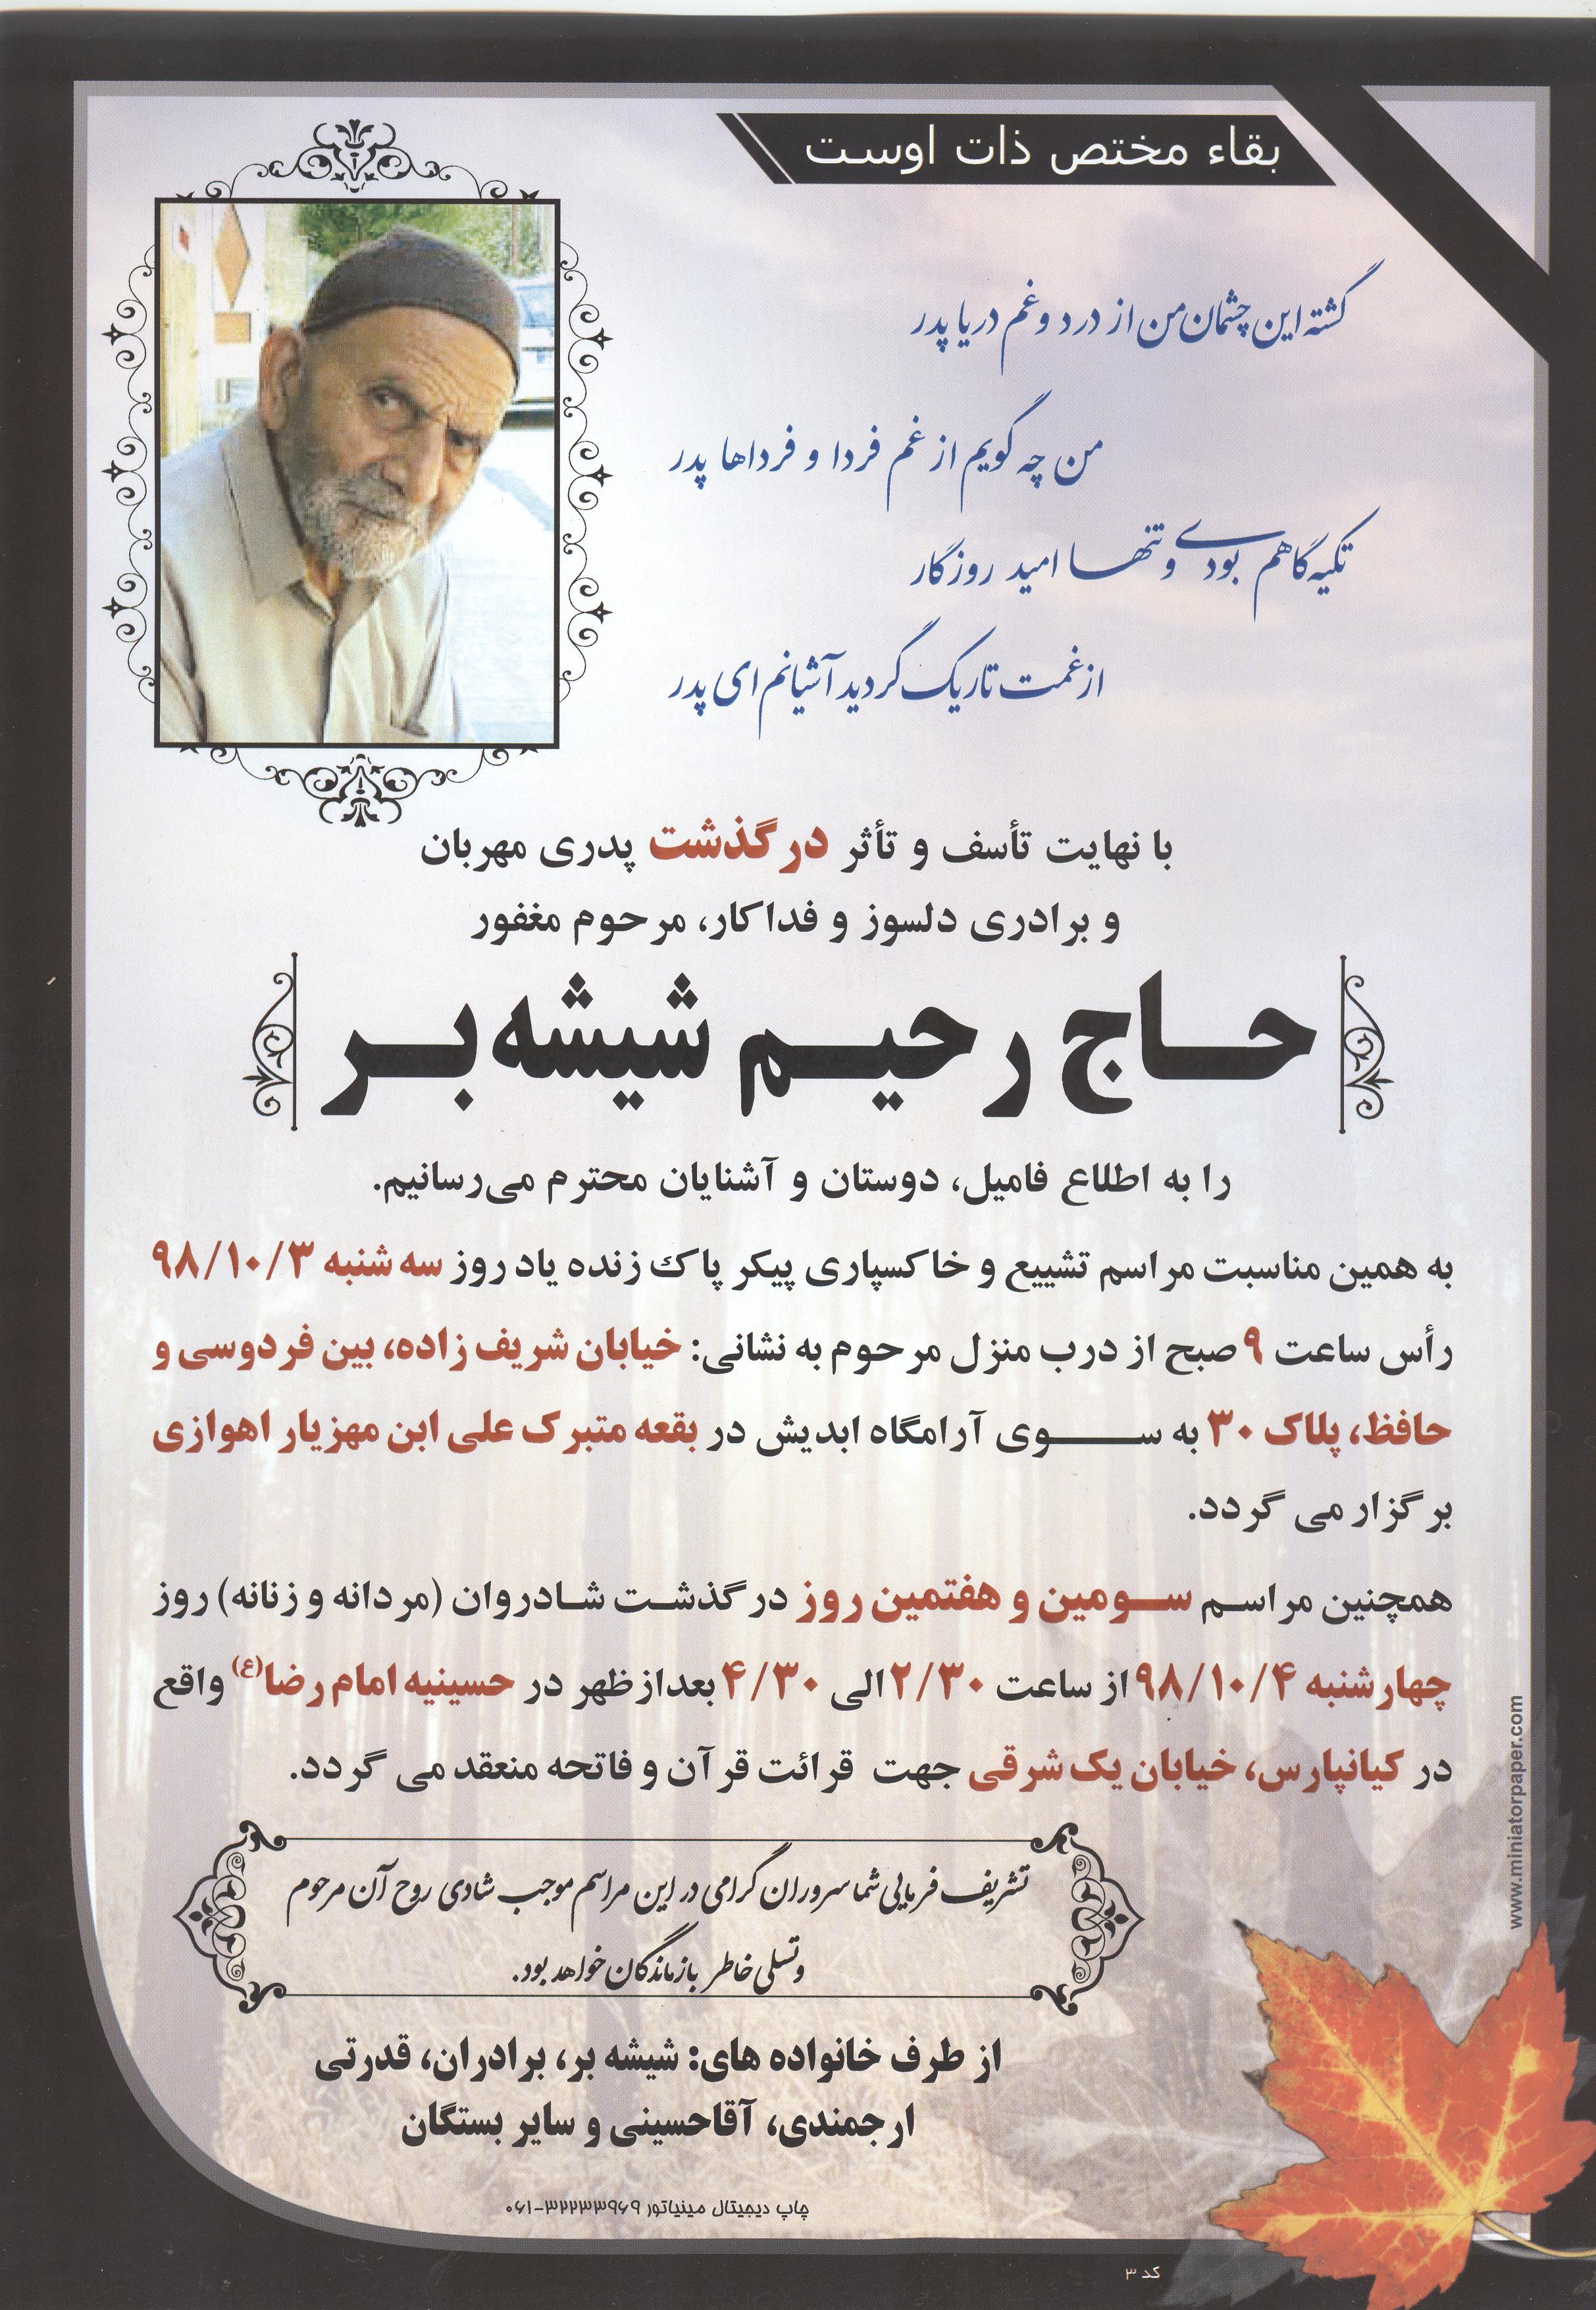 بقاء مختص ذات اوست
گشته این چشمان من از درد و غم دریا پدر
من چه گویم از غم فردا و فرداها پدر
تکیه گاهم بودی و تنها امید روزگار
از غمت تاریک گردید آشیانم ای پدر
با نهایت تأسف و تأثر درگذشت پدری مهربان
و برادری دلسوز و فداکار، مرحوم مغفور
حاج رحیم شیشه بر
را به اطلاع فامیل، دوستان و آشنایان محترم می‌رسانیم.
به همین مناسبت مراسم تشییع و خاکسپاری پیکر پاک زنده یاد روز سه شنبه ۹۸/۱۰/۳
رأس ساعت ۹ صبح از درب منزل مرحوم به نشانی: خیابان شریف زاده، بین فردوسی و
حافظ، پلاک ۳۰ به سوی آرامگاه ابدیش در بقعه متبرک علی ابن مهزیار اهوازی
برگزار می گردد.
همچنین مراسم سومین و هفتمین روز درگذشت شادروان (مردانه و زنانه) روز
چهارشنبه ۹۸/۱۰/۴ از ساعت ۲/۳۰ الی ۴/۳۰ بعدازظهر در حسینیه امام رضا(ع) واقع
در کیانپارس، خیابان یک شرقی جهت قرائت قرآن و فاتحه منعقد می گردد.
تشریف فرمایی شما سروران گرامی در این مراسم موجب شادی روح آن مرحوم
و تسلی خاطر بازماندگان خواهد بود.
از طرف خانواده های: شیشه بر، برادران، قدرتی
ارجمندی، آقاحسینی و سایر بستگان
چاپ دیجیتال مینیاتور ۳۲۲۳۳۹۶۹-۰۶۱
www.miniatorpaper.com
کد ۳